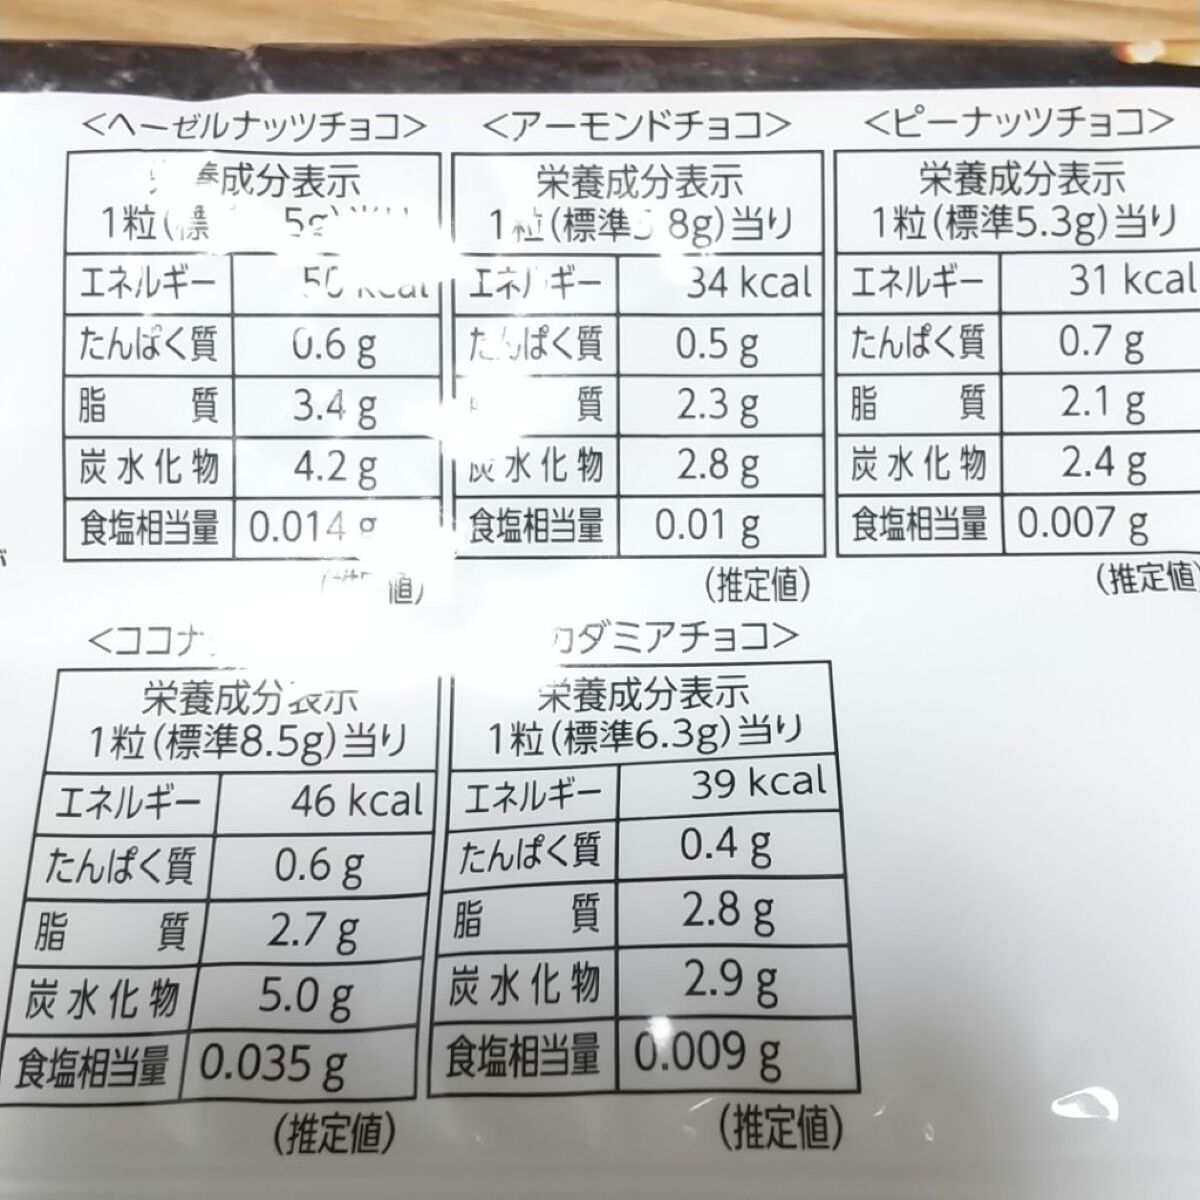 <ヘーゼルナッツチョコ>
養成分表示
1粒(標 5g)当り
エネルギー 50 kcal
たんぱく質 0.6 g
脂質 3.4 g
炭水化物 4.2 g
食塩相当量 0.014 g
(推定値)
<アーモンドチョコ>
栄養成分表示
1粒(標準5.8g)当り
エネルギー 34 kcal
たんぱく質 0.5 g
質 2.3 g
炭水化物 2.8 g
食塩相当量 0.01 g
(推定値)
<ピーナッツチョコ>
栄養成分表示
1粒(標準5.3g)当り
エネルギー 31 kcal
たんぱく質 0.7 g
脂質 2.1 g
炭水化物 2.4 g
食塩相当量 0.007 g
(推定値)
<ココナ
栄養成分表示
1粒(標準8.5g)当り
エネルギー 46 kcal
たんぱく質 0.6 g
脂質 2.7 g
炭水化物 5.0 g
食塩相当量 0.035 g
(推定値)
カダミアチョコ>
栄養成分表示
1粒(標準6.3g)当り
エネルギー 39 kcal
たんぱく質 0.4 g
脂質 2.8 g
炭水化物 2.9 g
食塩相当量 0.009 g
(推定値)